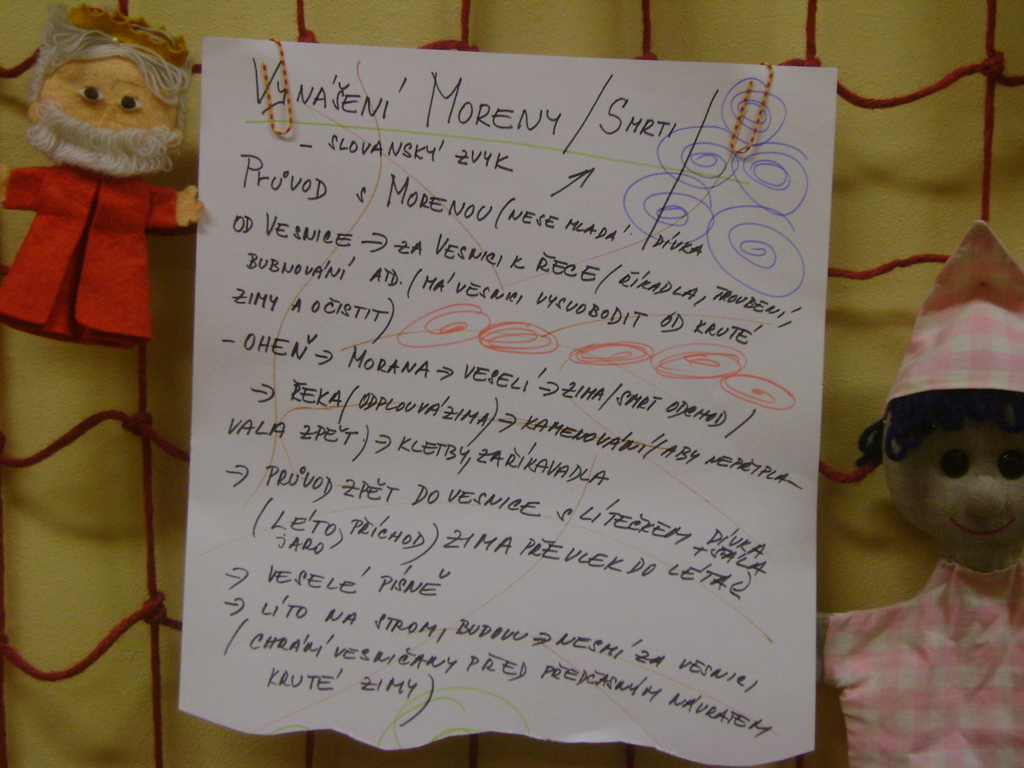 VYNÁŠENÍ MORENY / SMRTI /
- SLOVANSKÝ ZVYK
PRŮVOD S MORENOU (NESE MLADÁ DÍVKA
OD VESNICE → ZA VESNICI K ŘECE (ŘÍKADLA, TROUBENÍ,
BUBNOVÁNÍ ATD. (MÁ VESNICI VYSVOBODIT OD KRUTÉ
ZIMY A OČISTIT)
- OHEŇ → MORANA → VESELÍ → ZIMA/SMRT ODCHOD)
→ ŘEKA (ODPLOUVÁ ZIMA) → KAMENOVÁNÍ (ABY NEPŘIPLA-
VALA ZPĚT) → KLETBY, ZAŘÍKAVADLA
→ PRŮVOD ZPĚT DO VESNICE S LÍTEČKEM DÍVKA
(LÉTO, PŘÍCHOD) ZIMA PŘEVLEK DO LÉTA
JARO
→ VESELÉ PÍSNĚ
→ LÍTO NA STROM, BUDOVU → NESMÍ ZA VESNICI
(CHRÁNÍ VESNIČANY PŘED PŘEDČASNÝM NÁVRATEM
KRUTÉ ZIMY)